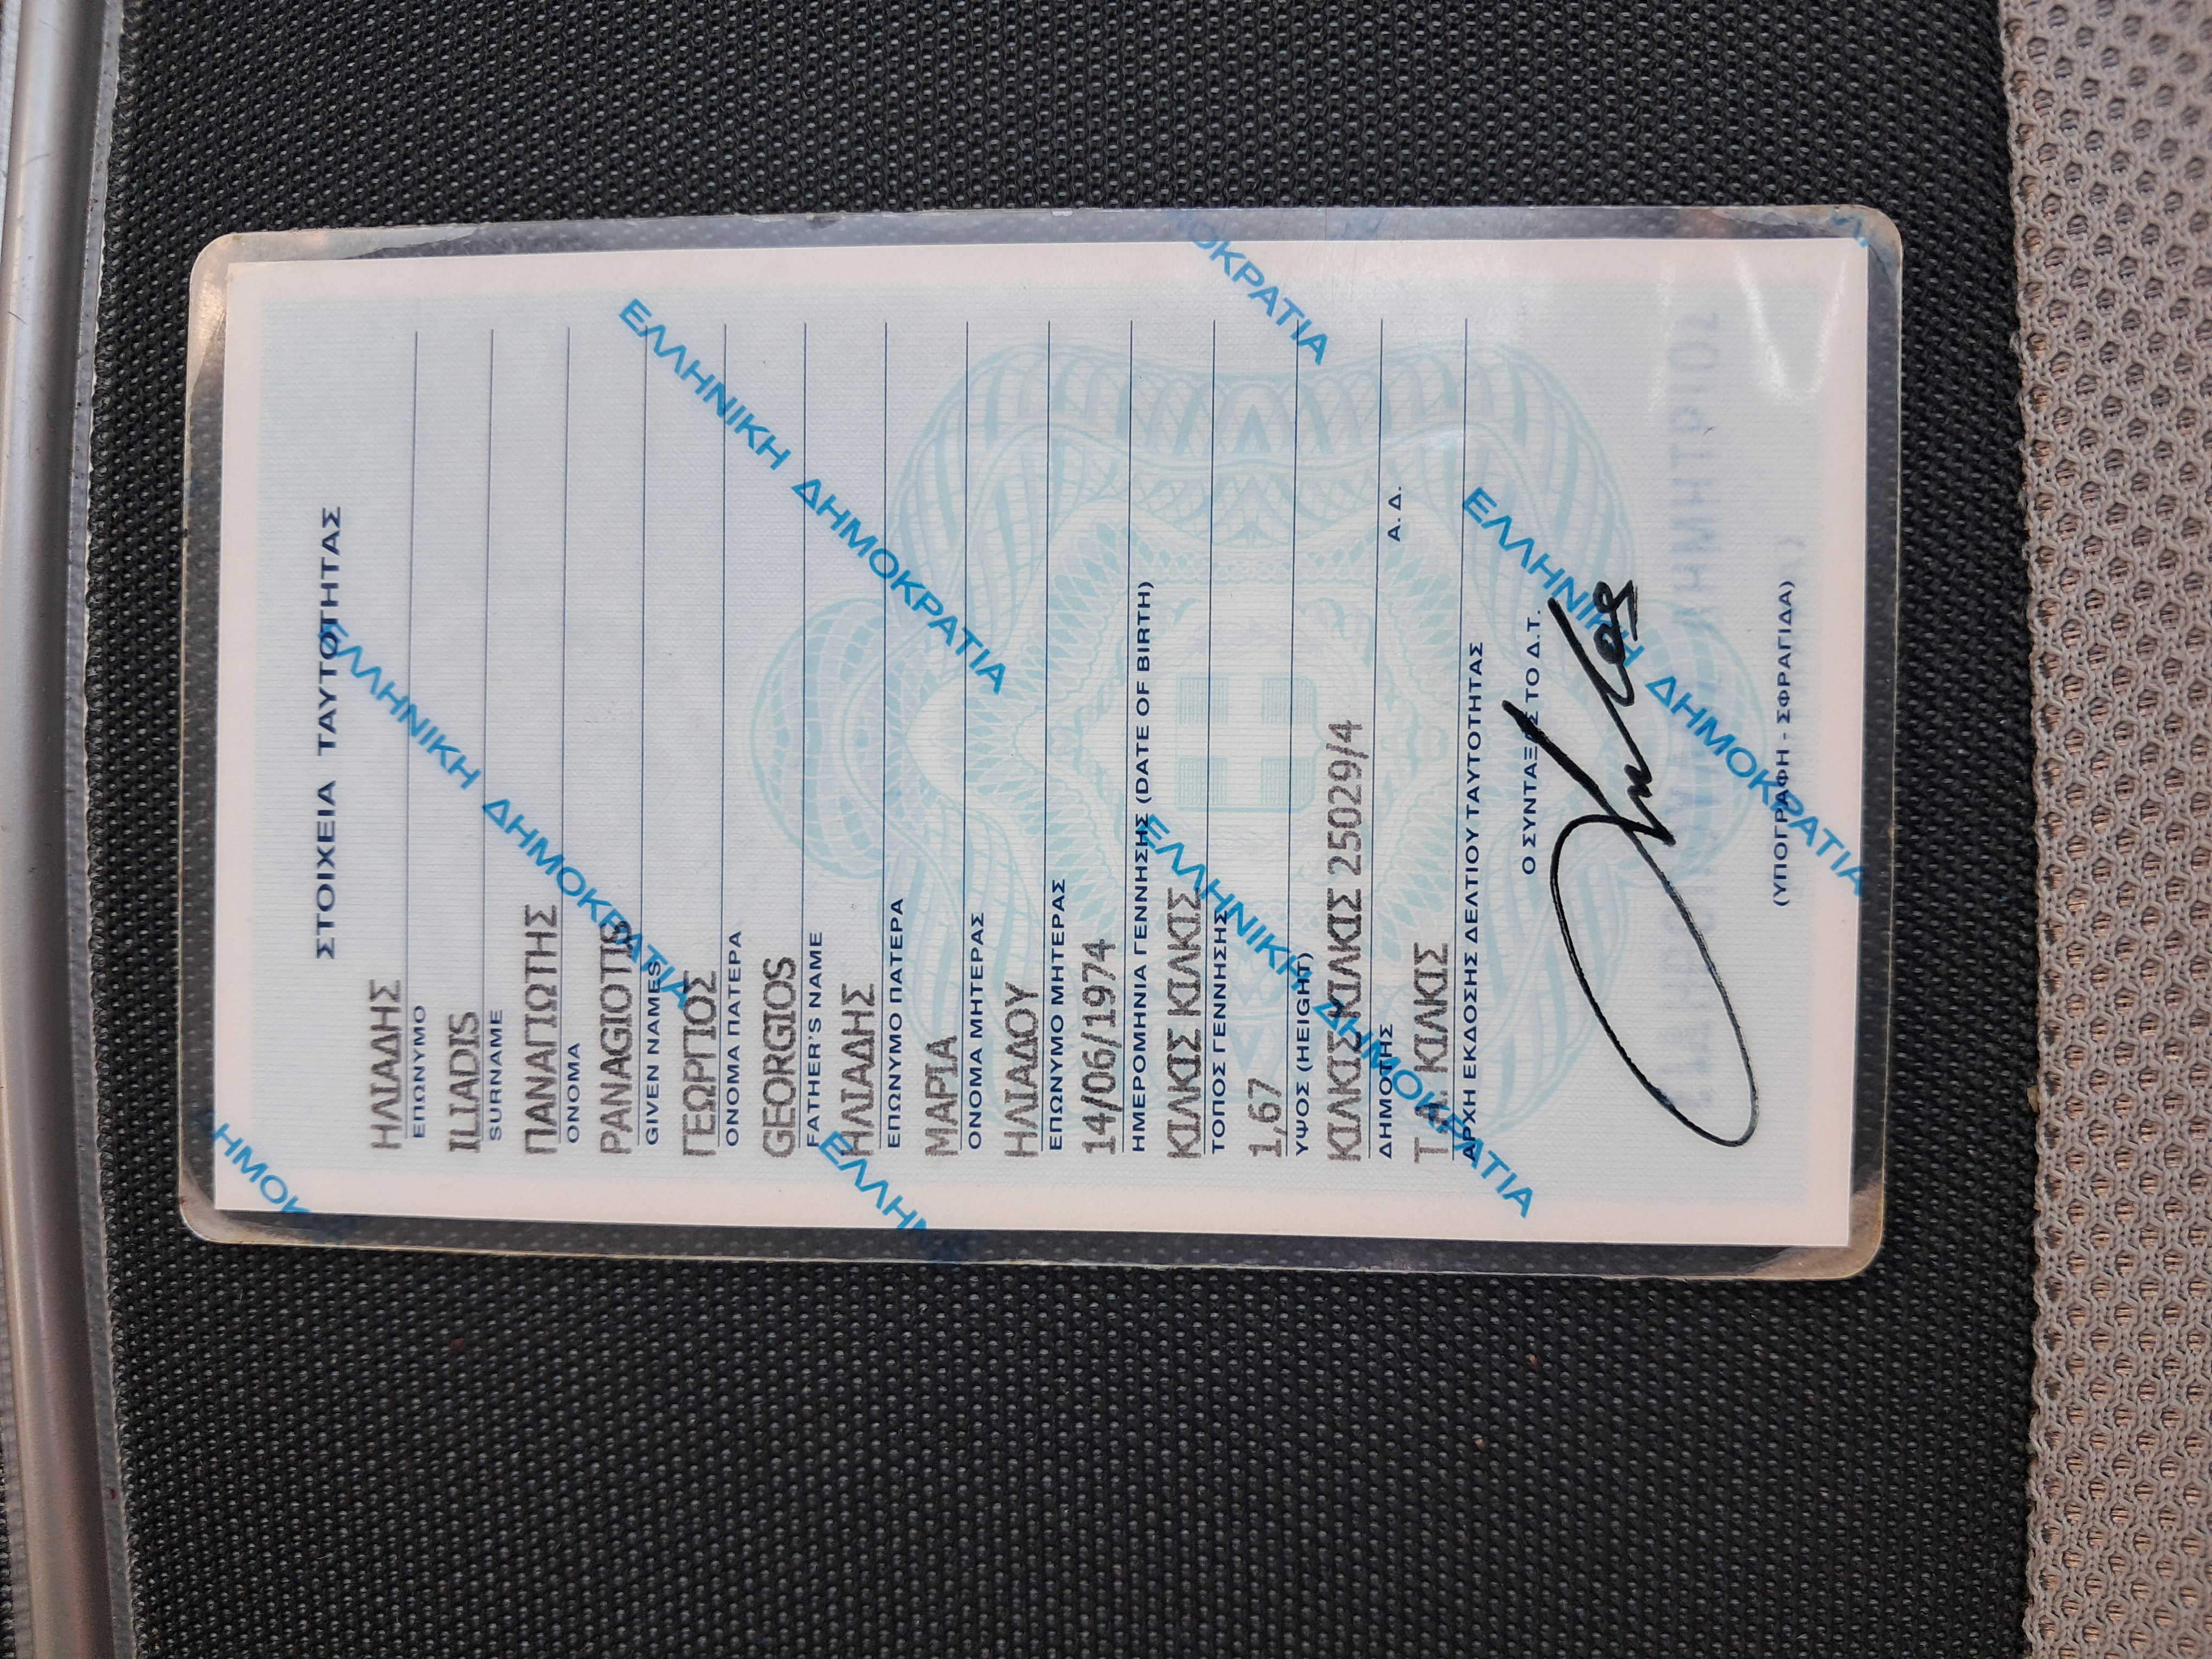 ΣΤΟΙΧΕΙΑ ΤΑΥΤΟΤΗΤΑΣ
ΗΛΙΑΔΗΣ
ΕΠΩΝΥΜΟ
ILIADIS
SURNAME
ΠΑΝΑΓΙΩΤΗΣ
ΟΝΟΜΑ
PANAGIOTIS
GIVEN NAMES
ΓΕΩΡΓΙΟΣ
ΟΝΟΜΑ ΠΑΤΕΡΑ
GEORGIOS
FATHER'S NAME
ΗΛΙΑΔΗΣ
ΕΠΩΝΥΜΟ ΠΑΤΕΡΑ
ΜΑΡΙΑ
ΟΝΟΜΑ ΜΗΤΕΡΑΣ
ΗΛΙΑΔΟΥ
ΕΠΩΝΥΜΟ ΜΗΤΕΡΑΣ
14/06/1974
ΗΜΕΡΟΜΗΝΙΑ ΓΕΝΝΗΣΗΣ (DATE OF BIRTH)
ΚΙΛΚΙΣ ΚΙΛΚΙΣ
ΤΟΠΟΣ ΓΕΝΝΗΣΗΣ
1,67
ΥΨΟΣ (HEIGHT)
ΚΙΛΚΙΣ ΚΙΛΚΙΣ 25029/4
ΔΗΜΟΤΗΣ Α.Δ.
Τ.Α. ΚΙΛΚΙΣ
ΑΡΧΗ ΕΚΔΟΣΗΣ ΔΕΛΤΙΟΥ ΤΑΥΤΟΤΗΤΑΣ
Ο ΣΥΝΤΑΞΑΣ ΤΟ Δ.Τ.
(ΥΠΟΓΡΑΦΗ - ΣΦΡΑΓΙΔΑ)
ΕΛΛΗΝΙΚΗ ΔΗΜΟΚΡΑΤΙΑ
ΕΛΛΗΝΙΚΗ ΔΗΜΟΚΡΑΤΙΑ
ΕΛΛΗΝΙΚΗ ΔΗΜΟΚΡΑΤΙΑ
ΕΛΛΗΝΙΚΗ ΔΗΜΟΚΡΑΤΙΑ